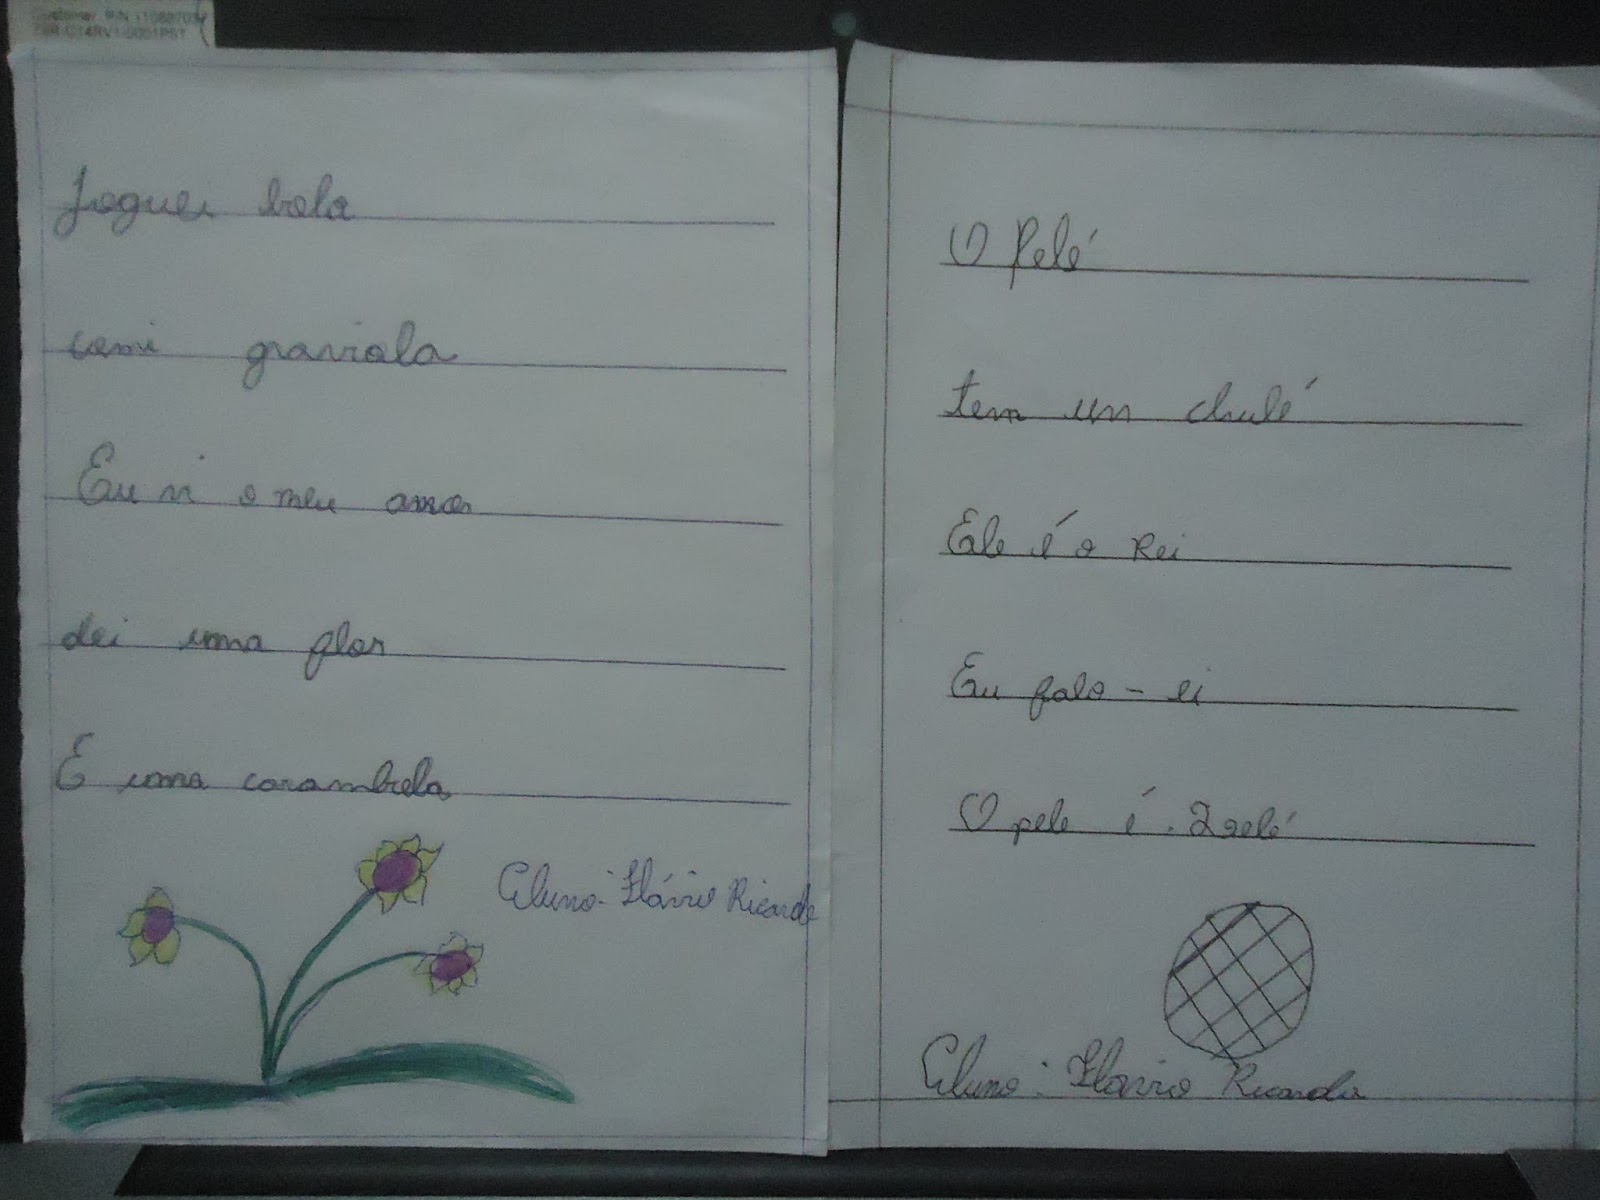 Joguei bola
comi graviola
Eu vi o meu amor
dei uma flor
E uma carambola
Aluno: Flávio Ricardo
O Pelé
tem um chulé
Ele é o Rei
Eu falo - ei
O pele é
Aluno: Flavio Ricardo